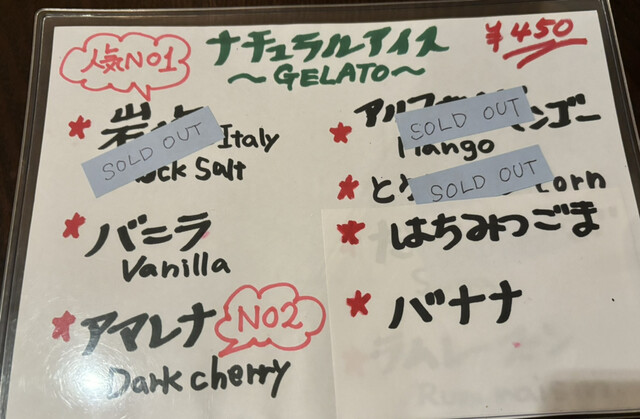 人気NO1
ナチュラルアイス
～GELATO～
¥450
岩 Italy
SOLD OUT
Rock Salt
バニラ
Vanilla
アマレナ
NO2
Dark cherry
アルフォンソマンゴー
SOLD OUT
Mango
と corn
SOLD OUT
はちみつごま
バナナ